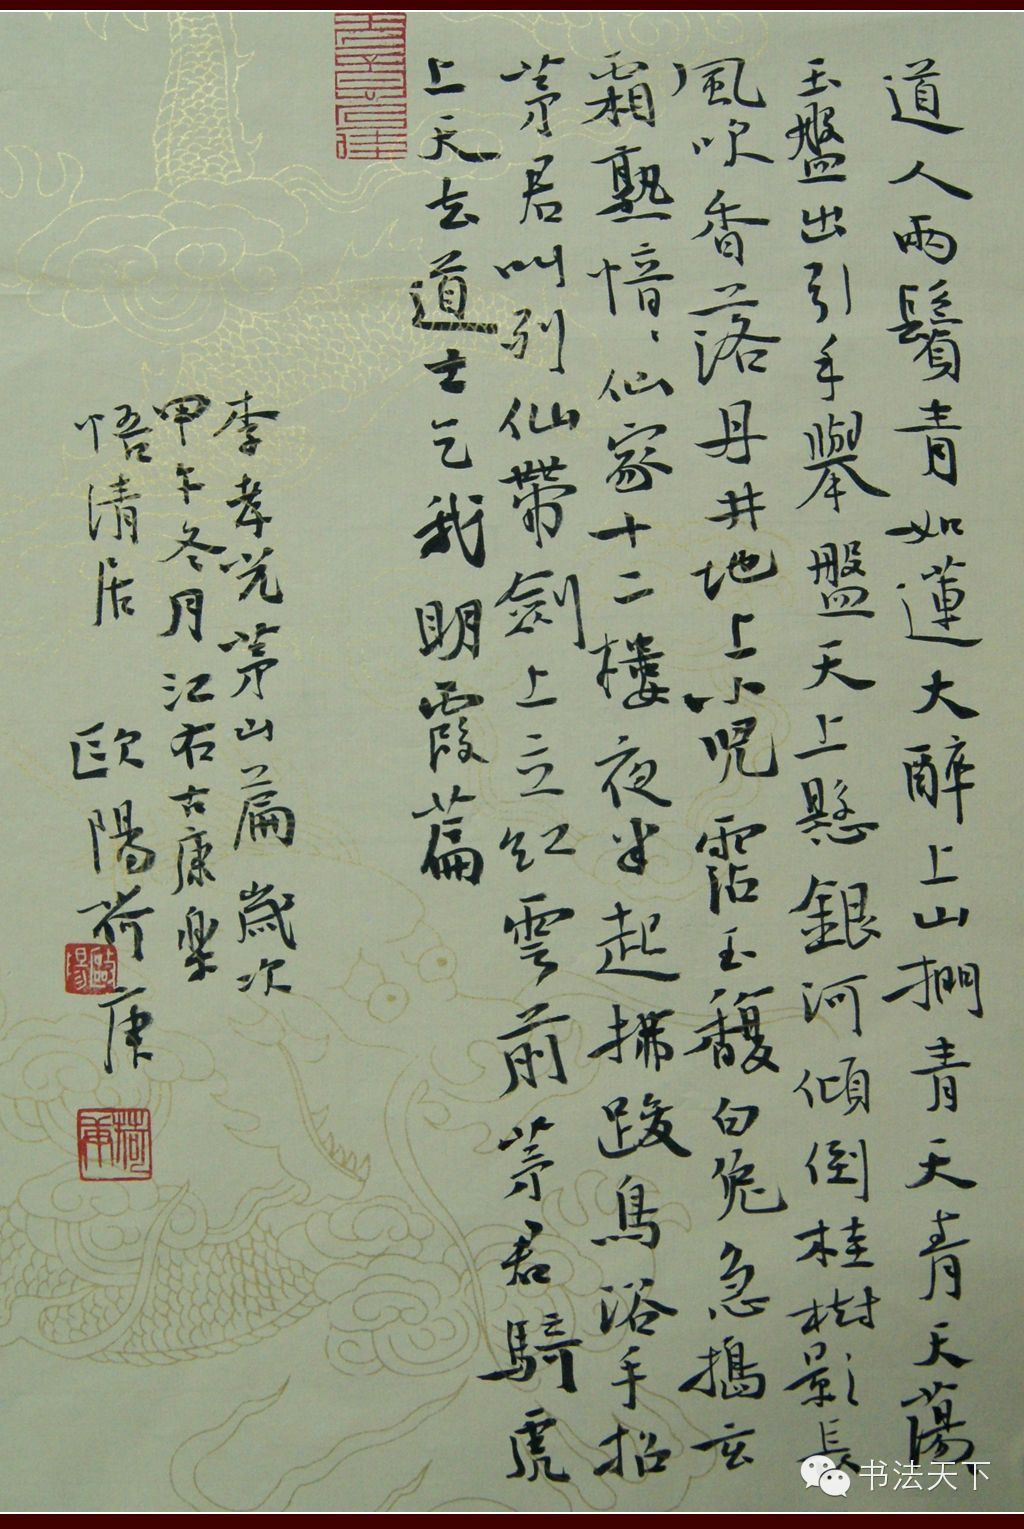 道人兩鬢青如蓮大醉上山捫青天青天蕩
玉盤出引手舉盤天上懸銀河傾倒桂樹影長
風吹香落丹井地上小兒霑玉馥白兔急搗玄
霜熟愔愔仙家十二樓夜半起拂踆烏浴手招
茅君叫列仙帶劍上立紅雲前茅君騎虎
上天去道士乞我明霞篇
李孝光茅山篇歲次
甲午冬月江右古康樂
悟清居 歐陽荷庚
歐陽
荷庚
书法天下